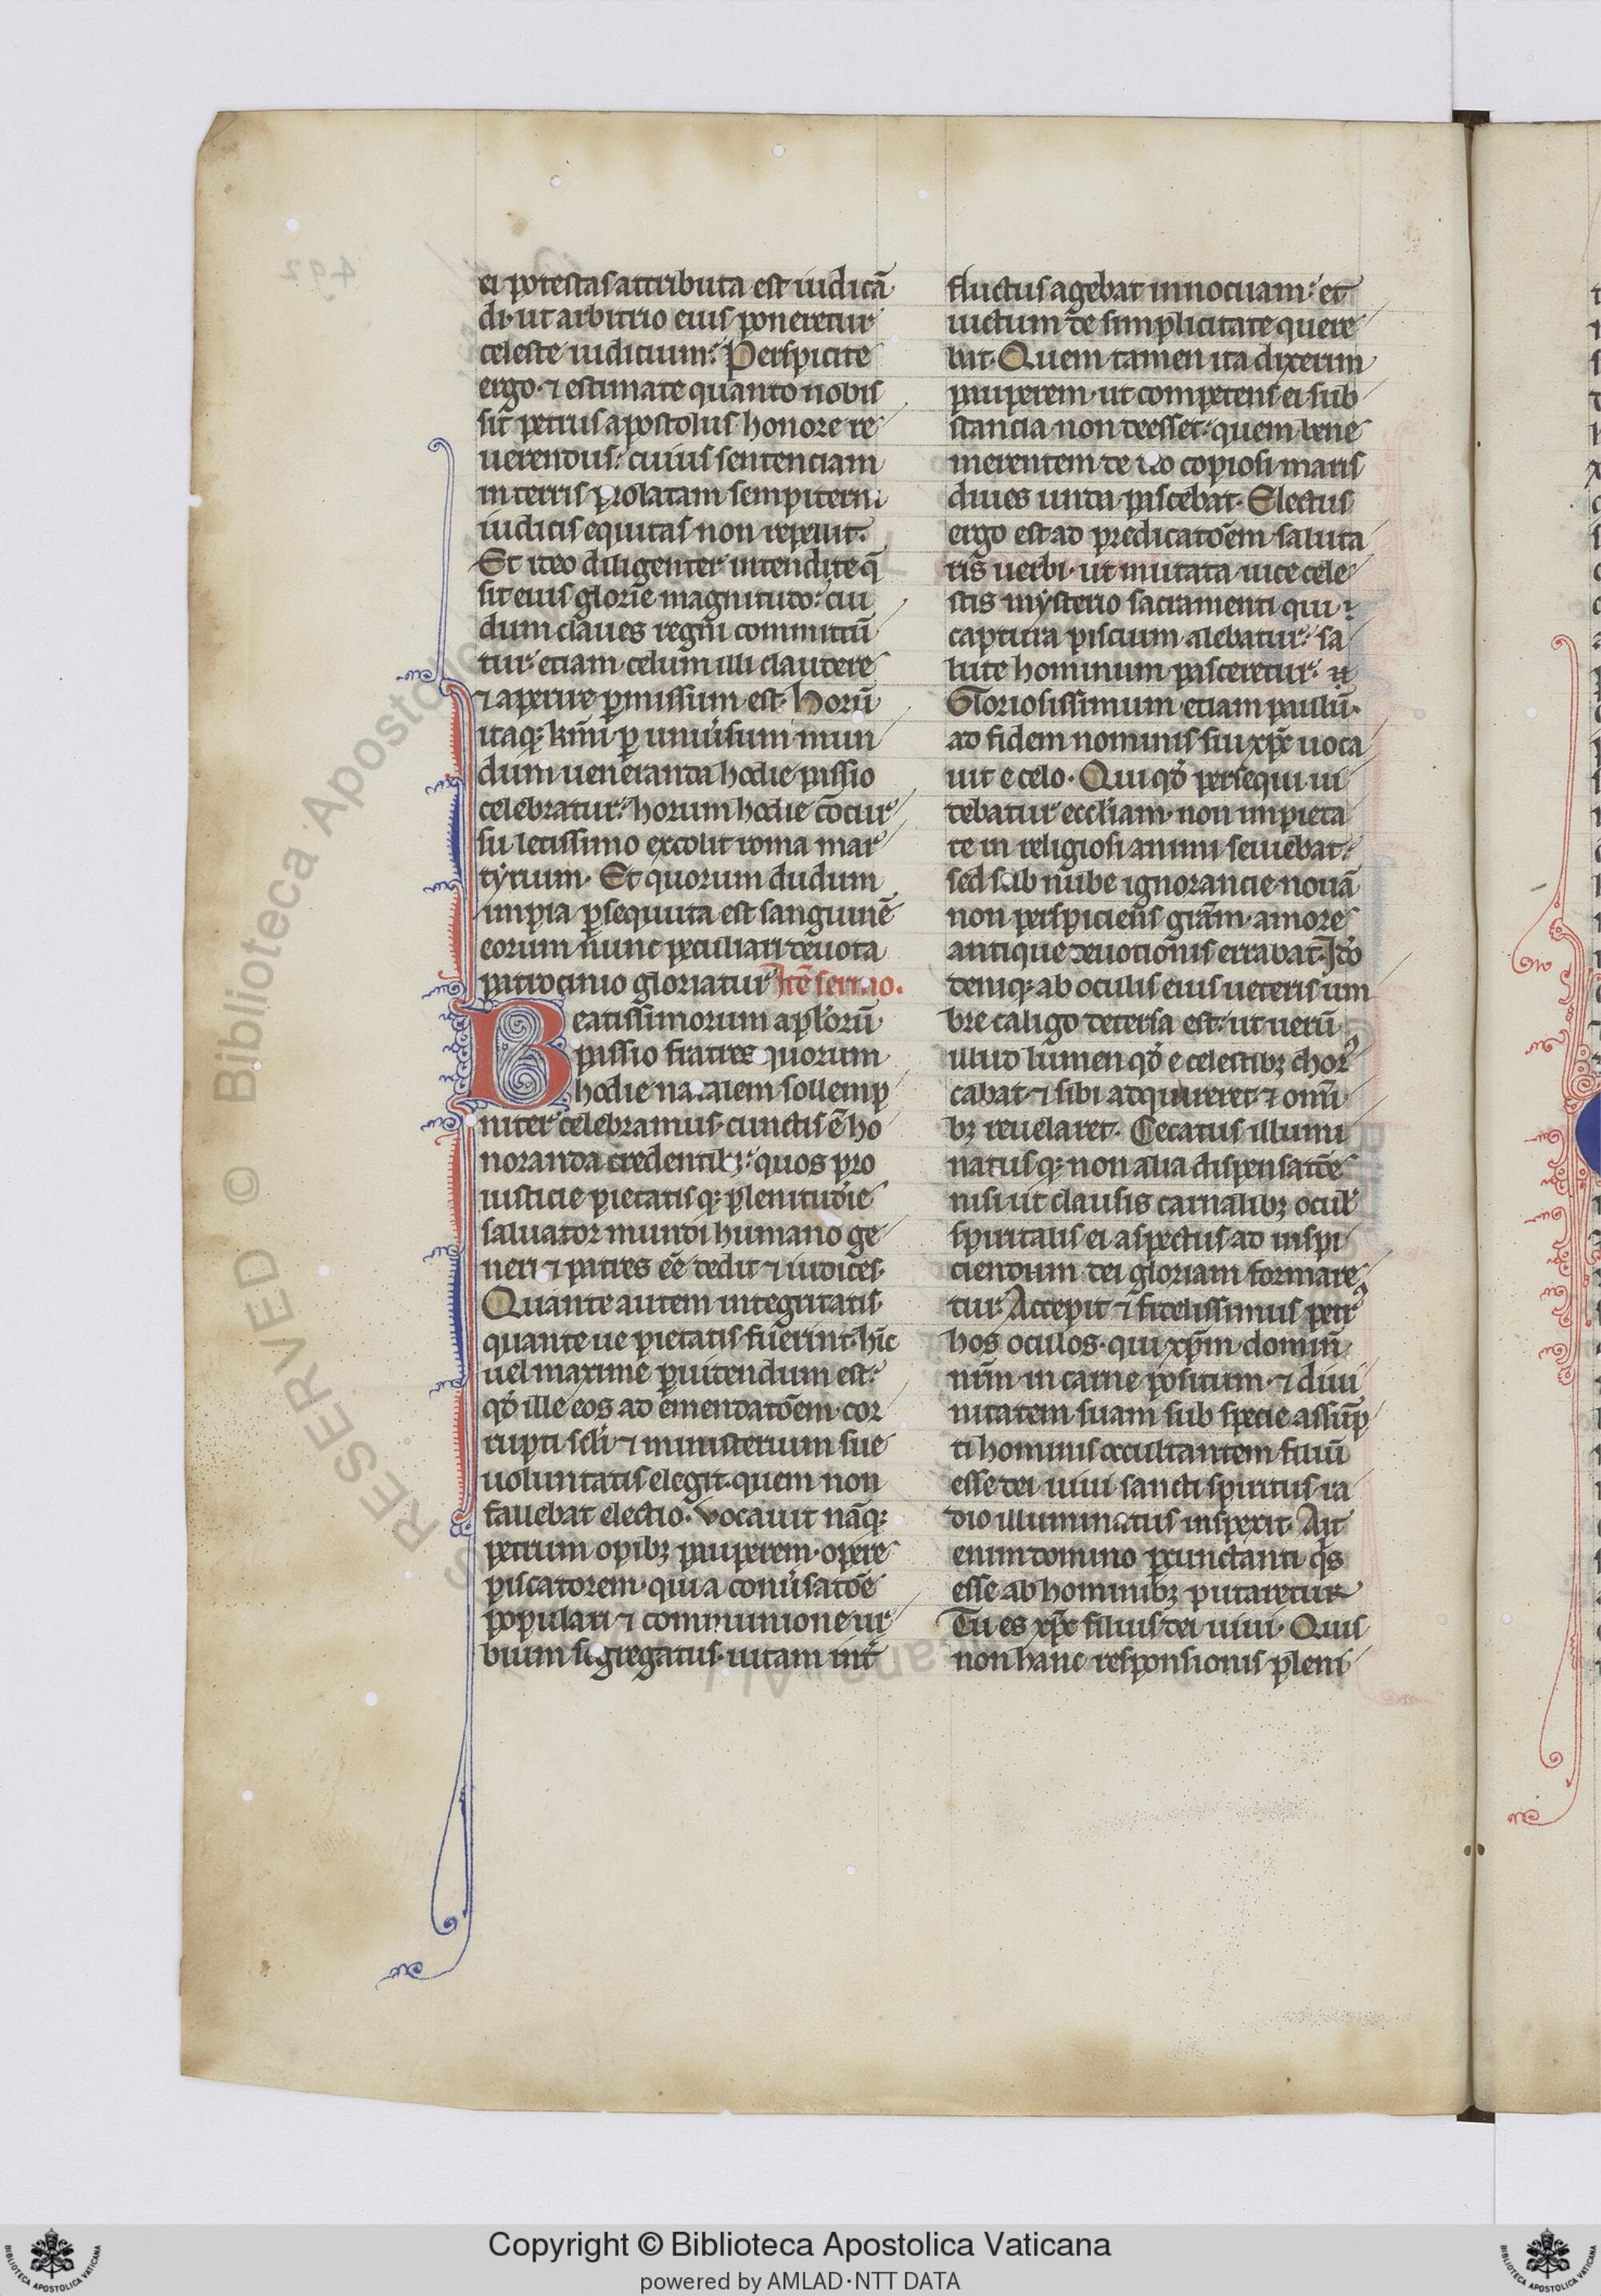 ei potestas attributa est iudicā
di· ut arbitrio eius poneretur
celeste iudicium. Perspicite
ergo· ⁊ estimate quanto nobis
sit petrus apostolus honore re
uerendus: cuius sentenciam
in terris prolatam sempiterni
iudicis equitas non repeuit.
Et ideo diligenter intendite q̄
sit eius glorie magnitudo: cui
dum claues regni committū
tur· etiam celum illi claudere
⁊ aperire ꝑmissum est. Horū
itaq; kmi ꝑ uniūsum mun
dum ueneranda hodie passio
celebratur: horum hodie cōcur
su letissimo excolit roma mar
tyrium. Et quorum dudum
impia ꝑsequuta est sanguinē
eorum nunc peculiari deuota
patrocinio gloriatur. Itē sermo.
Beatissimorum aplorū
passio fratres quorum
hodie natalem sollemp
niter celebramus· cunctis ē ho
noranda credentibꝫ: quos pro
iusticie pietatisq; plenitudīe
saluator mundi humano ge
neri ⁊ patres eē dedit ⁊ iudices.
Quante autem integritatis
quante ue pietatis fuerint· hīc
uel maxime ꝑuidendum est:
qđ ille eos ad emendatōem cor
rupti scłi ⁊ ministerium sue
uoluntatis elegit· quem non
fallebat electio. Vocauit nāq;
petrum opibꝫ pauperem· opere
piscatorem· qui a conūsatōe
populari ⁊ communione ur
bium segregatus· uitam int̄
fluctus agebat innocuam: et
uictum de simplicitate quere
bat. Quem tamen ita dixerim
pauperem· ut competens ei sub
stancia non deesset: quem bene
merentem de deo copiosi maris
diues unda pascebat. Electus
ergo est ad predicatōem saluta
ris uerbi· ut mutata uice cele
stis mysterio sacramenti qui
captura piscium alebatur: sa
lute hominum pasceretur.
Gloriosissimum etiam paulū·
ad fidem nominis sui xp̄c uoca
uit e celo. Qui qđ persequi ui
debatur eccłiam· non impieta
te in religiosi animi seuiebat:
sed sub nube ignorancie nouā
non perspiciens grām· amore
antique deuotionis errabat. Ido
demq; ab oculis eius ueteris um
bre caligo detersa est: ut uerū
illud lumen qđ e celestibꝫ chor
cabat ⁊ sibi adquireret ⁊ omī
bꝫ reuelaret. Cecatus illumi
natusq; non alia dispensatōe
nisi ut clausis carnalibꝫ ocul
spiritalis ei aspectus ad inspi
ciendum dei gloriam formare
tur. Accepit ⁊ fidelissimus petrꝰ
hos oculos· qui xp̄m dominū
nr̄m in carne positum· ⁊ diui
nitatem suam sub specie assūp
ti hominis occultantem filiū
esse dei uiui sancti spiritus ra
dio illuminatus inspexit. Ait
enim domino ꝑcunctanti q̄s
esse ab hominibꝫ putaretur
Tu es xp̄c filius dei uiui. Quis
non hanc responsionis pleni
RESERVED © Biblioteca Aposto
Copyright © Biblioteca Apostolica Vaticana
powered by AMLAD·NTT DATA